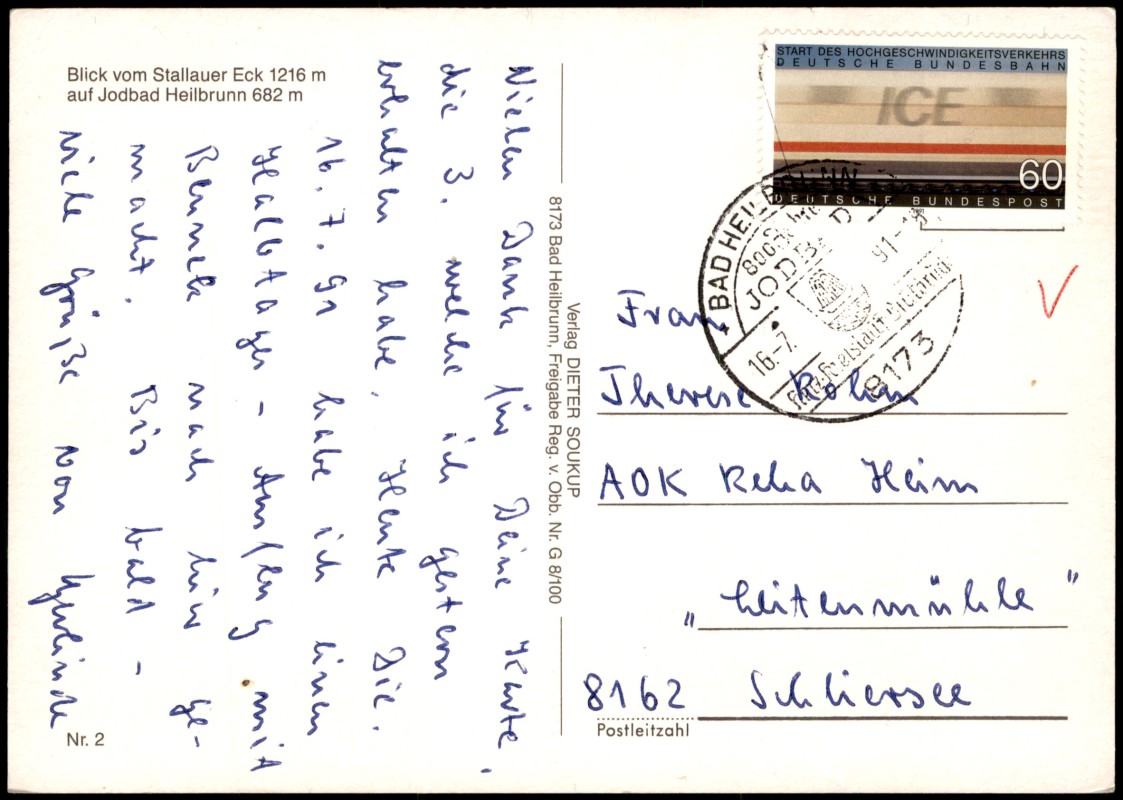 Blick vom Stallauer Eck 1216 m
auf Jodbad Heilbrunn 682 m
Vielen Dank für Deine Karte,
die 3. welche ich gestern
erhalten habe. Heute Die.
16.7.91 habe ich einen
Halbtags-Ausflug mit
Bennek nach hier ge-
macht. Bis bald -
viele Grüße von Gerlinde
Nr. 2
Verlag DIETER SOUKUP
8173 Bad Heilbrunn, Freigabe Reg. v. Obb. Nr. G 8/100
START DES HOCHGESCHWINDIGKEITSVERKEHRS
DEUTSCHE BUNDESBAHN
ICE
60
DEUTSCHE BUNDESPOST
BAD HEILBRUNN
JODBAD
16.-7.
91-
8173
Frau
Therese Rohm
AOK Reha Heim
"Leitenmühle"
8162 Schliersee
Postleitzahl